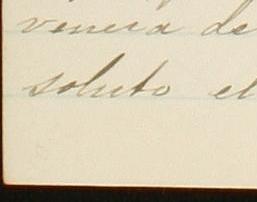 venera de
soluto el